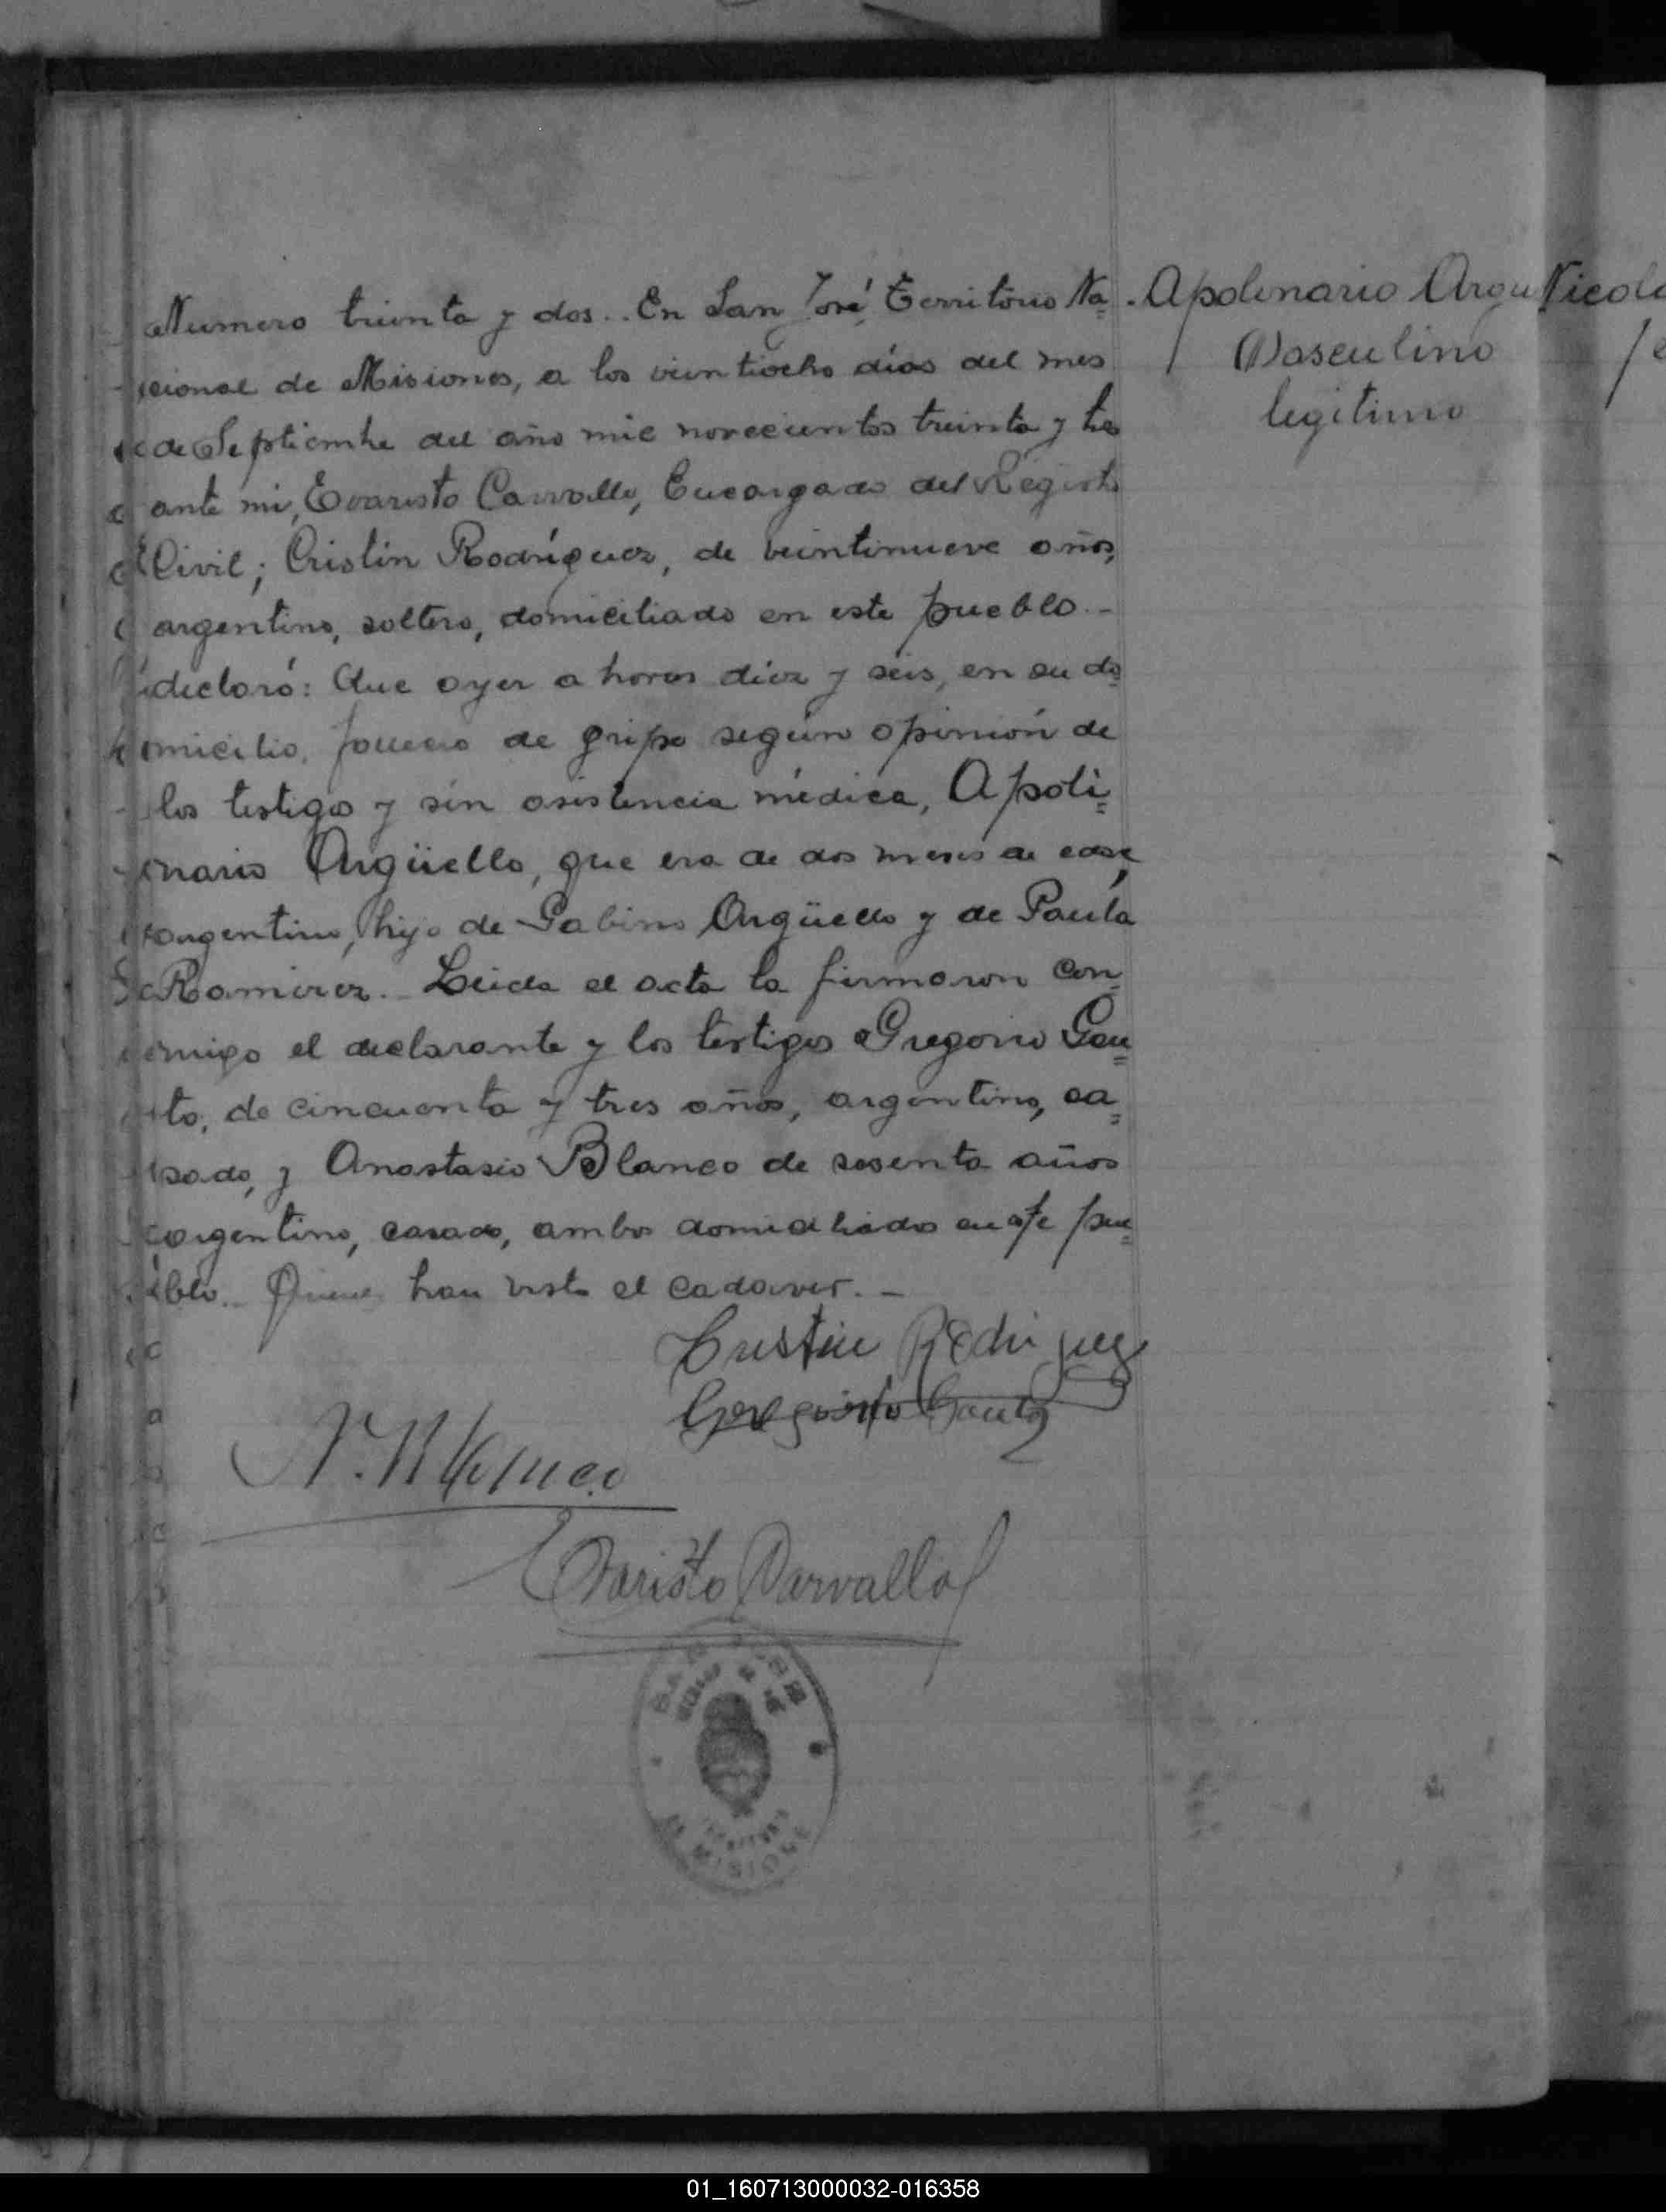 Numero treinta y dos.. En San José, Territorio Na=
cional de Misiones, a los veintiocho días del mes
de Septiembre del año mil novecientos treinta y tres
ante mi, Evaristo Carvallo, Encargado del Registro
Civil; Cristin Rodríguez, de veintinueve años,
argentino, soltero, domiciliado en este pueblo.-
declaró: Que ayer a horas diez y seis, en su do=
micilio, fallecio de gripe según opinión de
los testigos y sin asistencia médica, Apoli=
nario Argüello, que era de dos meses de edad,
argentino, hijo de Gabino Argüello y de Paula
Ramirez.- Leida el acta la firmaron con=
migo el declarante y los testigos Gregorio Gau=
to, de cincuenta y tres años, argentino, ca=
sado, y Anastasio Blanco de sesenta años
argentino, casado, ambos domiciliados en este pue=
blo.- Quienes han visto el cadaver.-
Cristin Rodriguez
Gregorio Gauto
A. Blanco
Evaristo Carvallo
MISIONES
Apolinario Argu
Masculino
legitimo
Nicola
01_160713000032-016358